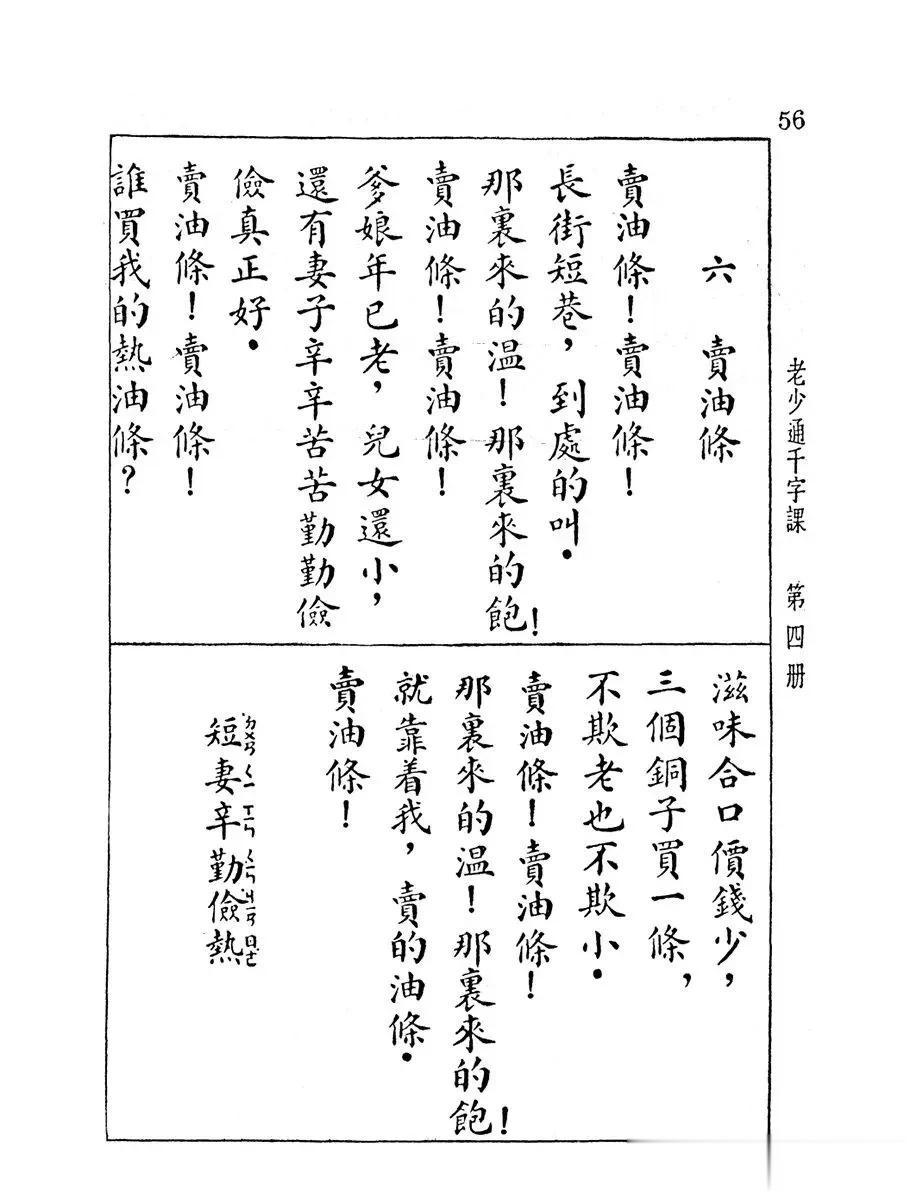 56
老少通千字課 第四册
六 賣油條
賣油條！賣油條！
長街短巷，到處的叫．
那裏來的温！那裏來的飽！
賣油條！賣油條！
爹娘年已老，兒女還小，
還有妻子辛辛苦苦勤勤儉
儉真正好．
賣油條！賣油條！
誰買我的熱油條？
滋味合口價錢少，
三個銅子買一條，
不欺老也不欺小．
賣油條！賣油條！
那裏來的温！那裏來的飽！
就靠着我，賣的油條．
賣油條！
短妻辛勤儉熱
ㄉㄨㄢ ㄑㄧ ㄒㄧㄣ ㄑㄧㄣ ㄐㄧㄢ ㄖㄜ